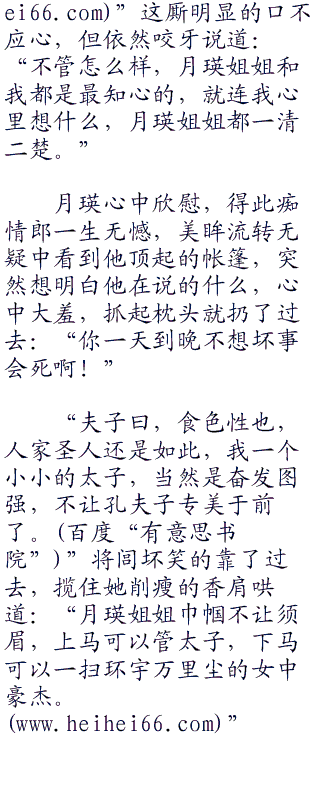 ei66.com)”这厮明显的口不
应心，但依然咬牙说道：
“不管怎么样，月瑛姐姐和
我都是最知心的，就连我心
里想什么，月瑛姐姐都一清
二楚。”
月瑛心中欣慰，得此痴
情郎一生无憾，美眸流转无
疑中看到他顶起的帐篷，突
然想明白他在说的什么，心
中大羞，抓起枕头就扔了过
去：“你一天到晚不想坏事
会死啊！”
“夫子曰，食色性也，
人家圣人还是如此，我一个
小小的太子，当然是奋发图
强，不让孔夫子专美于前
了。(百度“有意思书
院”)”将闾坏笑的靠了过
去，揽住她削瘦的香肩哄
道：“月瑛姐姐巾帼不让须
眉，上马可以管太子，下马
可以一扫环宇万里尘的女中
豪杰。
(www.heihei66.com)”